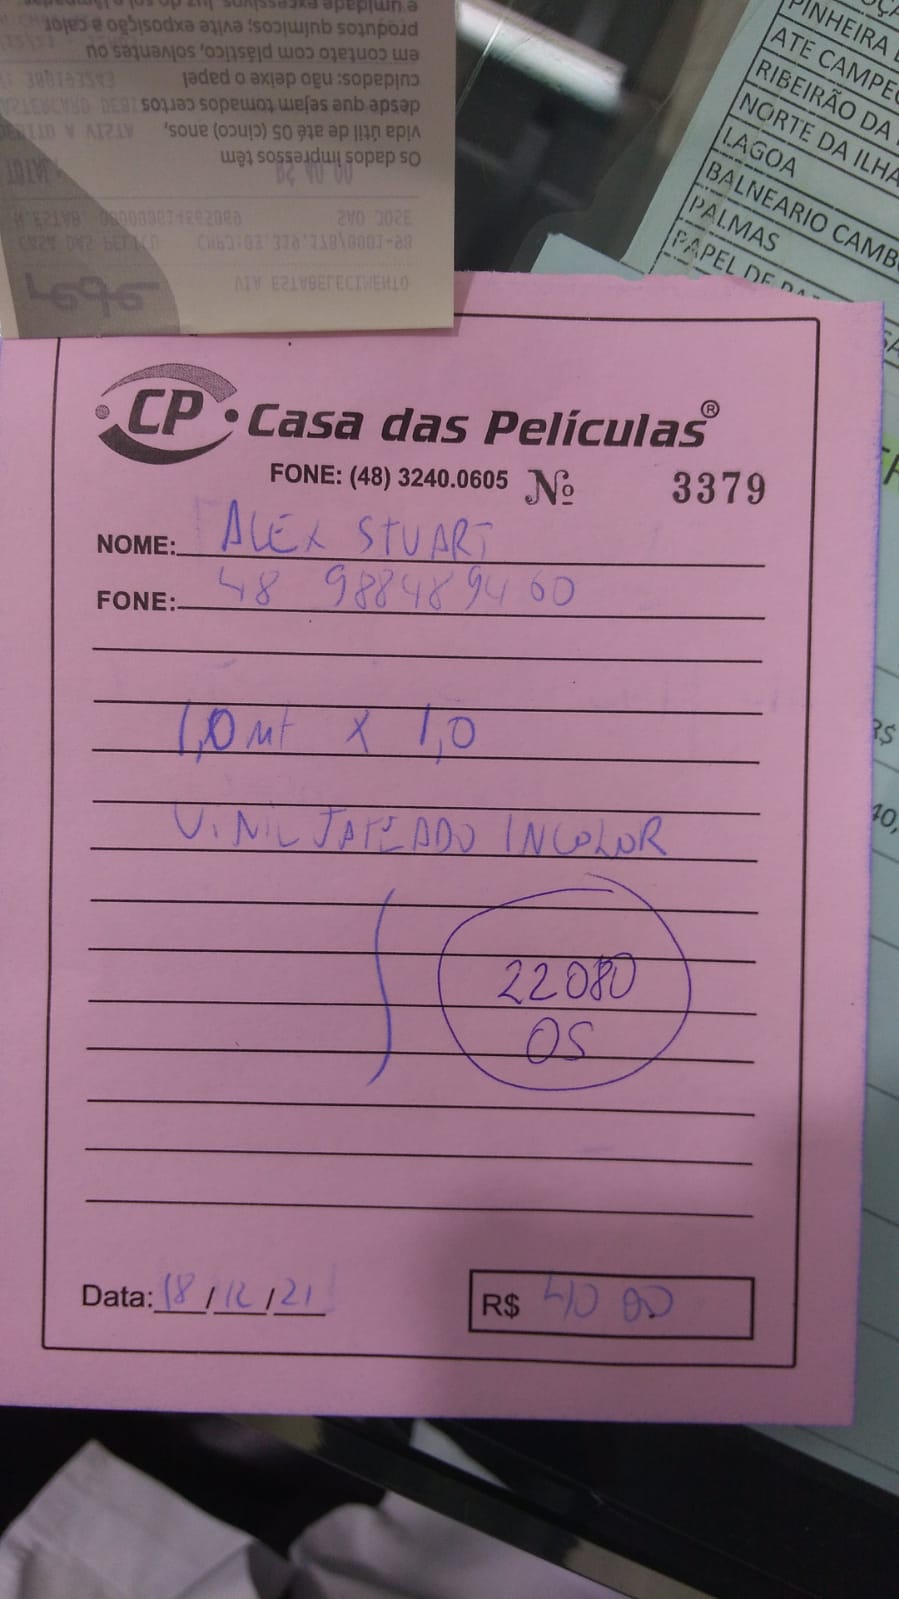 e umidade excessivos, luz do sol e lâmpadas
produtos químicos; evite exposição a calor
em contato com plástico, solventes ou
cuidados: não deixe o papel
desde que sejam tomados certos
vida útil de até 05 (cinco) anos,
Os dados impressos têm
VIA ESTABELECIMENTO
SAO JOSE
PINHEIRA
ATE CAMPE
RIBEIRÃO DA
NORTE DA ILHA
LAGOA
BALNEARIO CAMB
PALMAS
PAPEL DE
CP Casa das Películas®
FONE: (48) 3240.0605 Nº 3379
NOME: ALEX STUART
FONE: 48 988489460
1,0 mt X 1,0
VINIL JATEADO INCOLOR
22080
OS
Data: 18/12/21 R$ 40 00
R$
40,